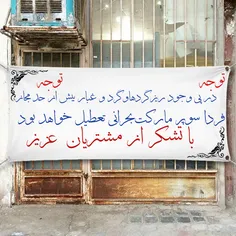 توجه توجه
در پی وجود ریزگردها و گرد و غبار بیش از حد مجاز
فردا سوپر مارکت بحرانی تعطیل خواهد بود
با تشکر از مشتریان عزیز